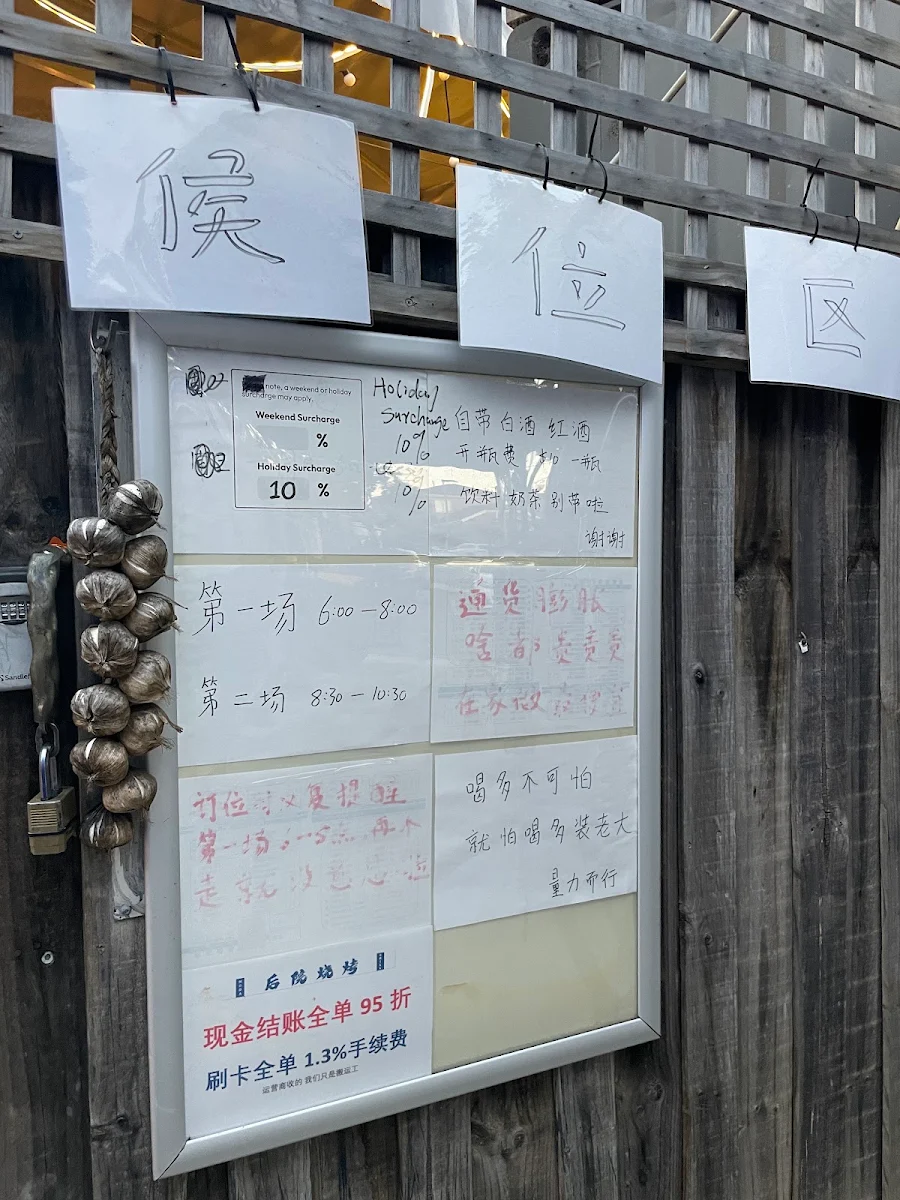 候 位 区
note, a weekend or holiday
surcharge may apply.
Weekend Surcharge
%
Holiday Surcharge
10 %
Holiday
Surcharge
10%
10%
自带白酒 红酒
开瓶费 $10 一瓶
饮料 奶茶 别带啦
谢谢
第一场 6:00 — 8:00
第二场 8:30 — 10:30
通货膨胀
啥都贵贵贵
在家做
订位时 提醒
第一场 再不
走就没意思啦
喝多不可怕
就怕喝多装老大
量力而行
后院烧烤
现金结账全单 95 折
刷卡全单 1.3%手续费
运营商收的 我们只是搬运工